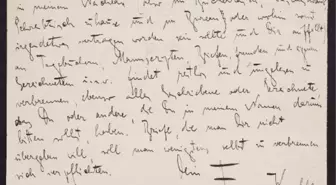 in meinem Nachlass
Schreibtisch zuhause und im Bureau, oder wohin sonst
irgendetwas vertragen worden sein sollte und Dir auffällt
an Tagebüchern, Manuscripten, Briefen, fremden und eigenen,
Gezeichnetem u.s.w. findet restlos und ungelesen zu
verbrennen, ebenso alles Geschriebene oder Gezeichnete,
das Du oder andere, die Du in meinem Namen darum
bitten sollst, haben. Briefe, die man Dir nicht
übergeben will, soll man wenigstens selbst zu verbrennen
sich verpflichten.
Dein